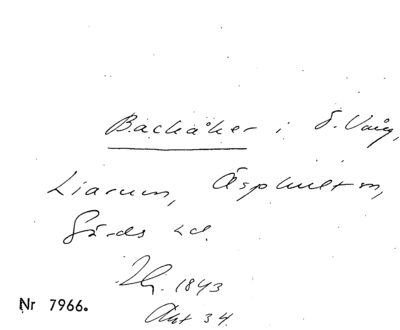 Backåker i S. Vång,
Liarum, Äsphult sn,
Gärds hd.
Lh. 1843
Akt 34
Nr 7966.